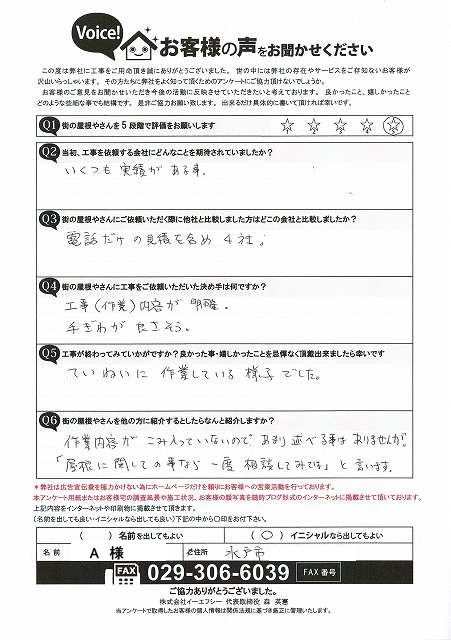 Voice!
お客様の声をお聞かせください
この度は弊社に工事をご用命頂き誠にありがとうございました。世の中には弊社の存在やサービスをご存知ないお客様が
沢山いらっしゃいます。その方たちに弊社をよく知って頂くためのアンケートにご協力頂けないでしょうか。
お客様のご意見をお聞かせいただき今後の活動に反映させていただきたいと考えております。良かったこと、嬉しかったこと
どのような些細な事でも結構です。是非ご協力お願い致します。出来るだけ具体的に書いて頂ければ幸いです。
Q1 街の屋根やさんを5段階で評価をお願いします
Q2 当初、工事を依頼する会社にどんなことを期待されていましたか？
いくつも実績がある事.
Q3 街の屋根やさんにご依頼いただく際に他社と比較しました方はどこの会社と比較しましたか？
電話だけの見積を含め 4社.
Q4 街の屋根やさんに工事をご依頼いただいた決め手は何ですか？
工事(作業)内容が明確.
手ぎわが良さそう.
Q5 工事が終わってみていかがですか？良かった事・嬉しかったことを忌憚なく頂戴出来ましたら幸いです
ていねいに作業している様子でした。
Q6 街の屋根やさんを他の方に紹介するとしたらなんと紹介しますか？
作業内容がこみ入っていないのであまり述べる事はありませんが.
「屋根に関しての事なら一度相談してみては」と言います。
＊弊社は広告宣伝費を極力かけない為にホームページだけを頼りにお客様への営業活動を行っております。
本アンケート用紙またはお客様宅の調査風景や施工状況、お客様の顔写真を随時ブログ形式のインターネットに掲載させて頂いております。
上記内容をインターネットや印刷物に掲載させて頂きます。
(名前を出しても良い・イニシャルなら出しても良い)下記の中から〇印をお付け下さい。
(　)名前を出してもよい (〇)イニシャルなら出してもよい
名前 A 様 ご住所 水戸市
FAX 029-306-6039 FAX 番号
ご協力ありがとうございました。
株式会社イーエフシー 代表取締役 森 英憲
当アンケートで取得したお客様の個人情報は関係法規に基づき厳正に管理いたします。